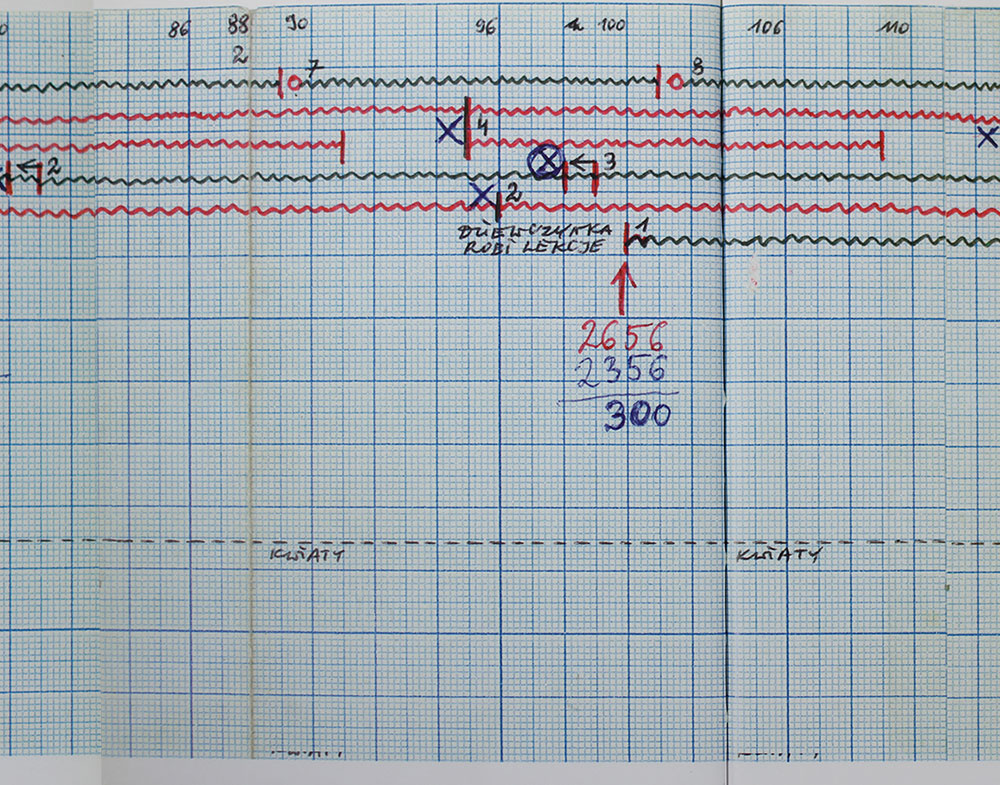 0 86 88 90 96 100 106 110
2
7 8
4
2 3
2
DZIEWCZYNKA 1
ROBI LEKCJE
2656
2356
300
KWIATY KWIATY